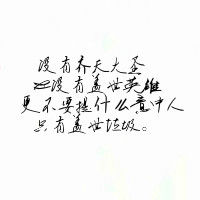 没有齐天大圣
也没有盖世英雄
更不要提什么意中人
只有盖世垃圾。